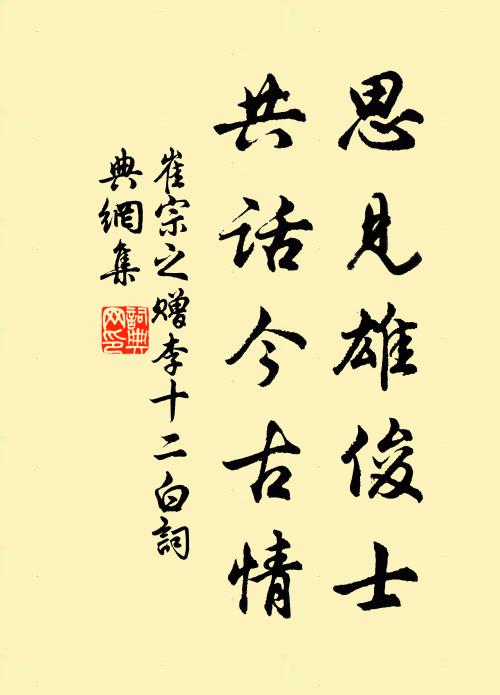 思見雄俊士
共话今古情
崔宗之赠李十二白詞
典網集
詞典
网印